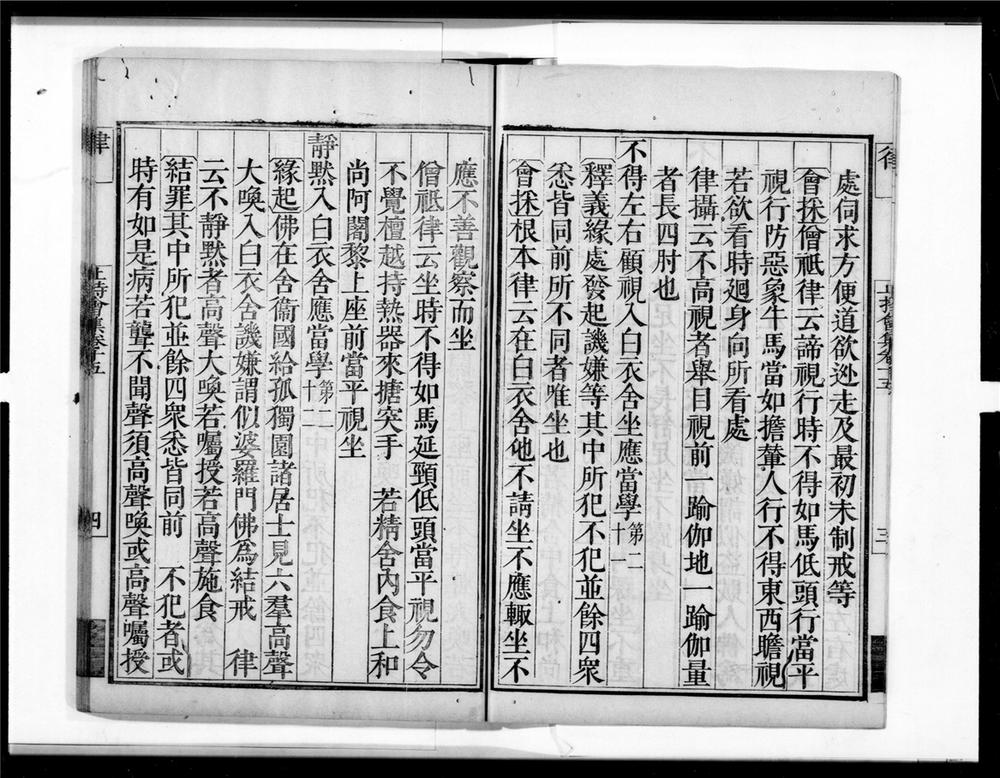 處伺求方便道欲逃走及最初未制戒等
會採僧祇律云諦視行時不得如馬低頭行當平
視行防惡象牛馬當如擔輦人行不得東西瞻視
若欲看時迴身向所看處
律攝云不高視者舉目視前一踰伽地一踰伽量
者長四肘也
不得左右顧視入白衣舍坐應當學第二十一
釋義緣處發起譏嫌等其中所犯不犯並餘四衆
悉皆同前所不同者唯坐也
會採根本律云在白衣舍他不請坐不應輙坐不
三
應不善觀察而坐
僧祇律云坐時不得如馬延頸低頭當平視勿令
不覺檀越持熱器來搪突手 若精舍內食上和
尚阿闍黎上座前當平視坐
靜默入白衣舍應當學第二十二
緣起佛在舍衞國給孤獨園諸居士見六羣高聲
大喚入白衣舍譏嫌謂似婆羅門佛為結戒 律
云不靜默者高聲大喚若囑授若高聲施食
結罪其中所犯並餘四衆悉皆同前 不犯者或
時有如是病若聾不聞聲須高聲喚或高聲囑授
律
止持會集卷十五
四